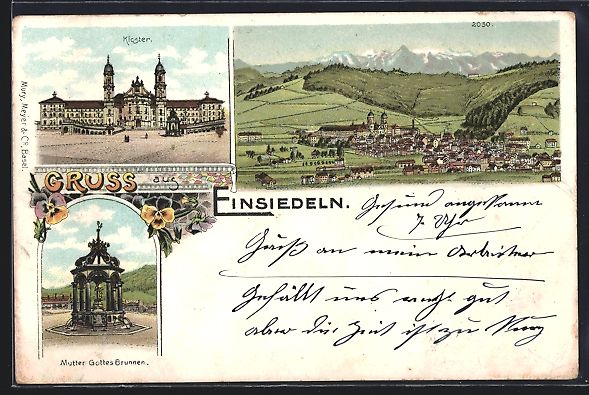 Kloster.
2030.
Mury, Meyer & Co. Basel.
GRUSS AUS
EINSIEDELN.
Gesund angekommen
7 Uhr
Gruß an mein Arbeitner
Gefällt uns recht gut
aber die Zeit ist zu kurz
Mutter Gottes Brunnen.